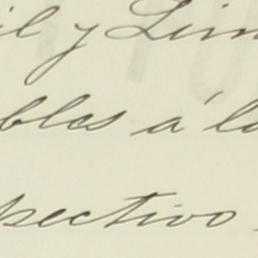 il y Lim
bles á la
pectivo.